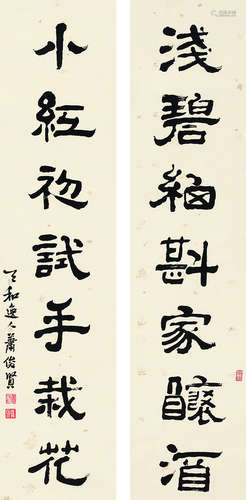 淺碧細斟家釀酒
小紅初試手栽花
天和逸人蕭俊賢